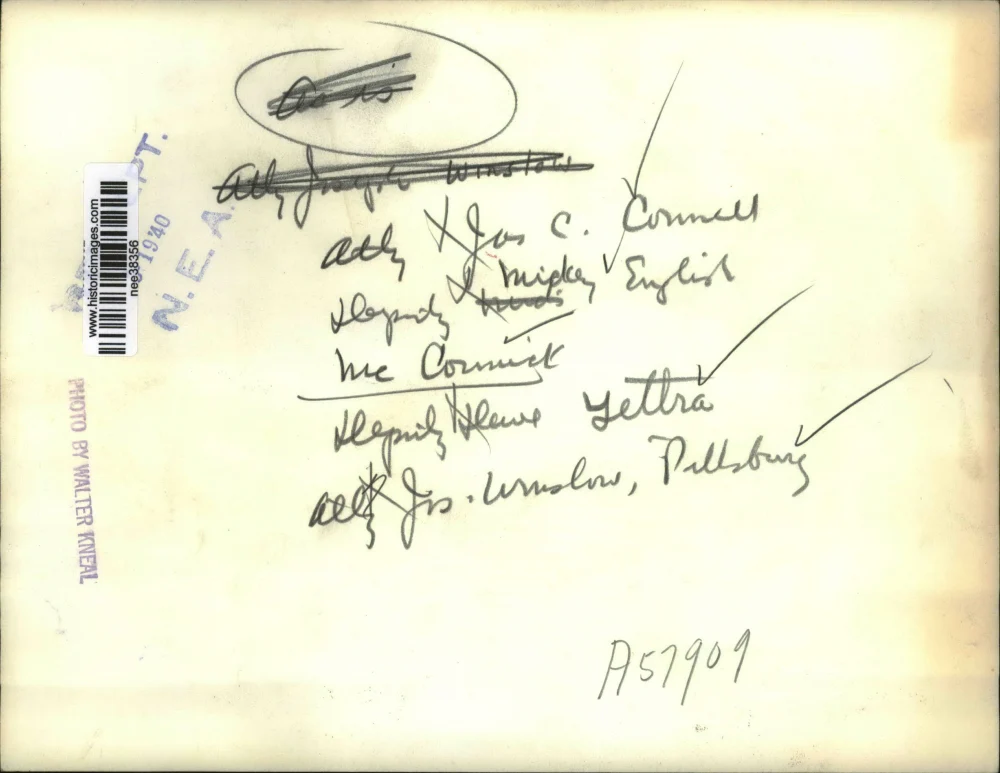 As is
Atty Joseph Winslow
Atty Jos C. Connell
Deputy Mickey English
Mc Cormick
Deputy Steve Yettra
Atty Jos. Winslow, Pillsbury
A57909
www.historicimages.com
nee38356
PT.
1940
N. E. A.
PHOTO BY WALTER KNEAL